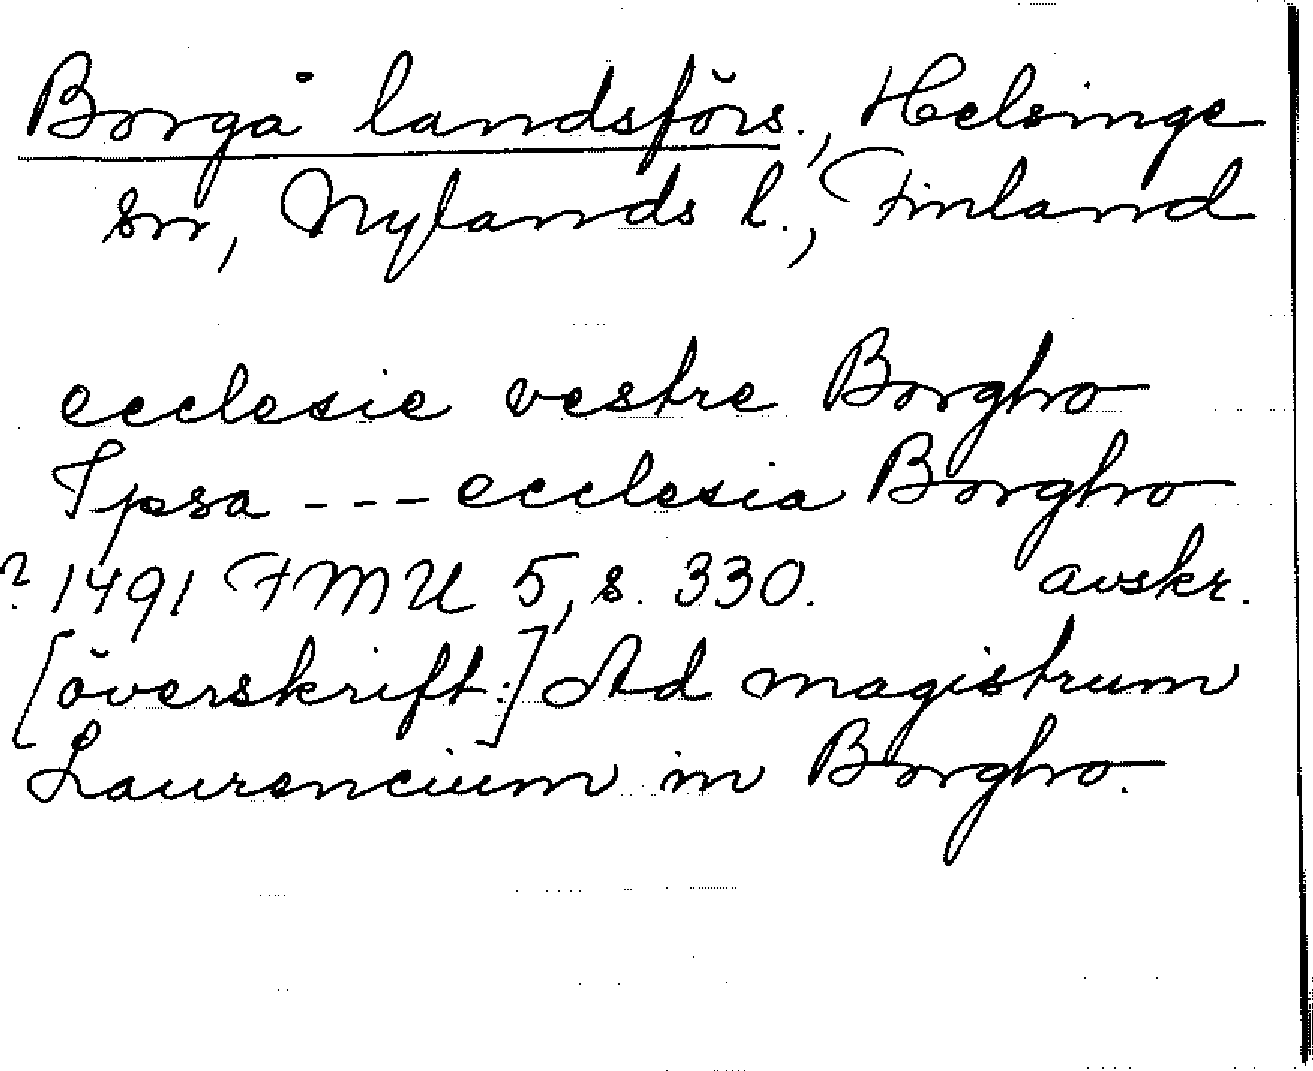 Borgå landsförs., Helsinge
sn, Nylands l., Finland
ecclesie vestre Borgho
Ipsa --- ecclesia Borgho
? 1491 FMU 5, s. 330. avskr.
[överskrift:] Ad magistrum
Laurencium in Borgho.